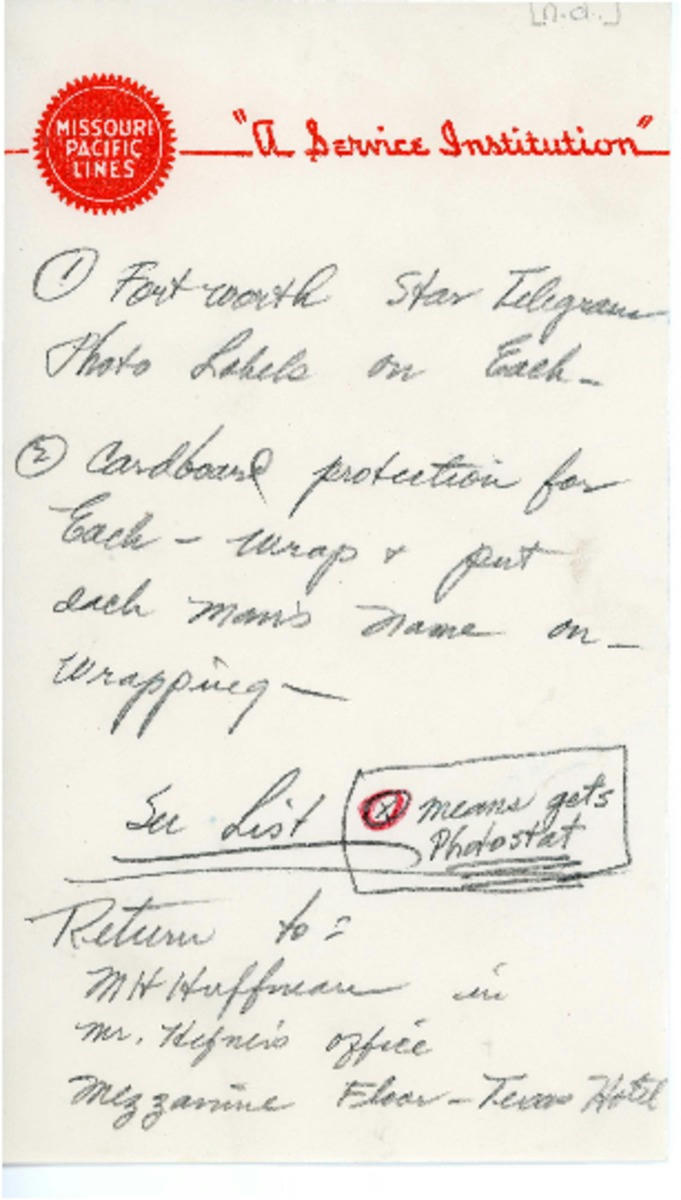 [n.d.]
MISSOURI
PACIFIC
LINES
"A Service Institution"
① Fort worth Star Telegram
Photo Labels on Each -
② Cardboard protection for
Each - wrap & put
each man's name on -
wrapping -
See List
ⓧ means gets
Photostat
Return to:
MH Huffman in
Mr. office
Mezzanine Floor - Texas Hotel